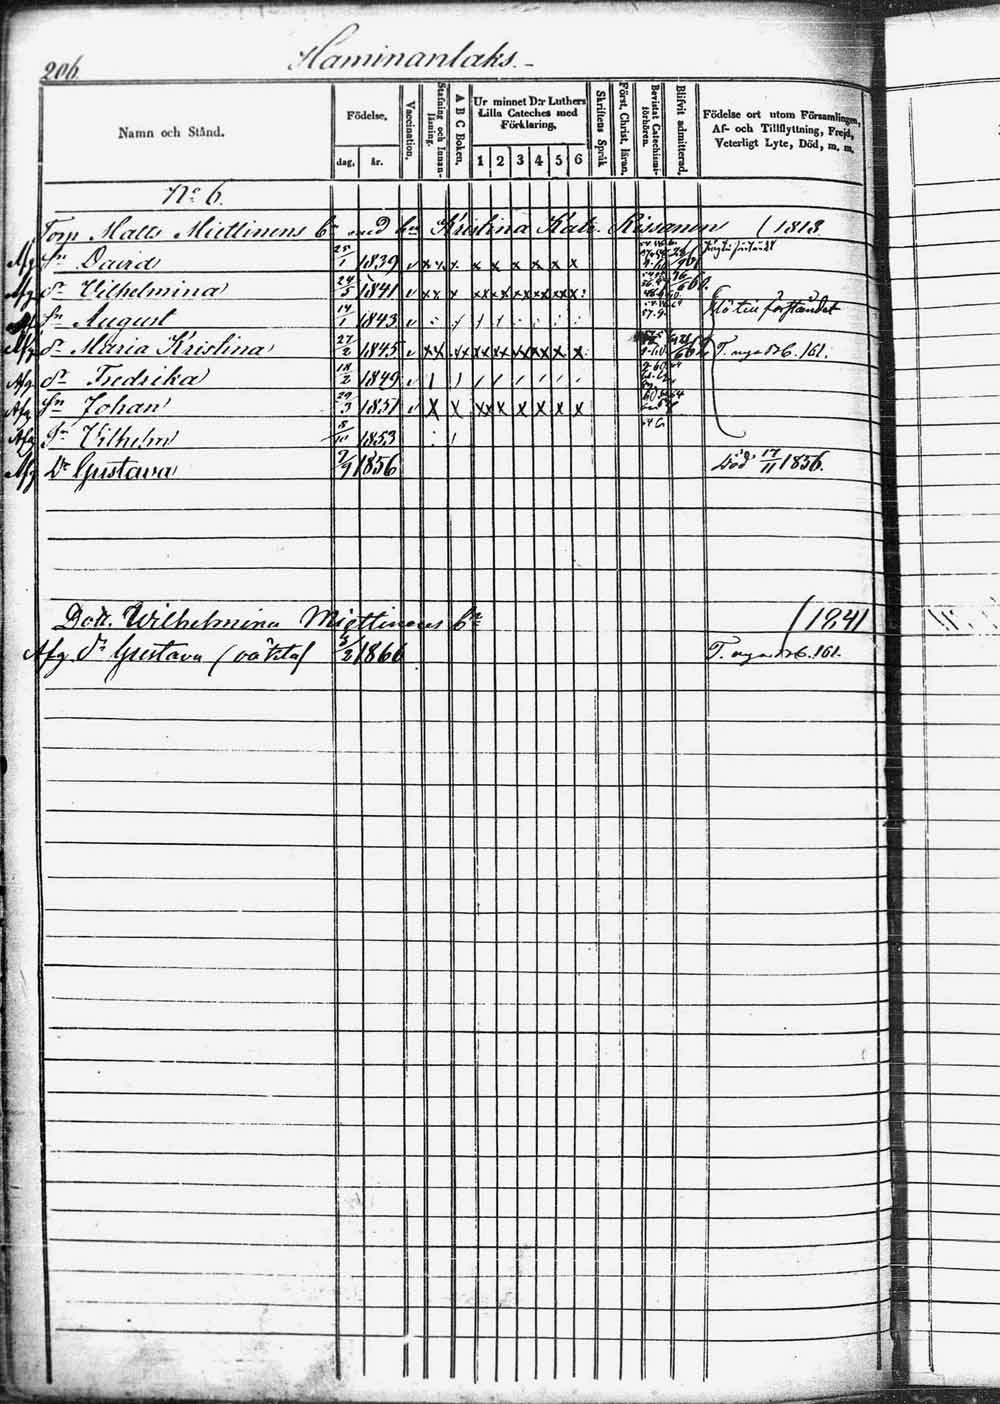 206.
Haminanlaks.
Namn och Stånd.
Födelse,
dag,
år.
Vaccination.
Stafning och Innan-läsning.
A B C Boken.
Ur minnet D:r Luthers
Lilla Cateches med
Förklaring,
1 2 3 4 5 6
Skriftens Språk
Först. Christ. läran.
Bevistat Catechismi-förhören.
Blifvit admitterad.
Födelse ort utom Församlingen,
Af- och Tillflyttning, Frejd,
Veterligt Lyte, Död, m. m.
No 6.
Torp Matts Miettinens bn med hu Kristina Kats. Rissanen (1813.
Afg Sn David 25/1 1839 v x x x x x x x x x
Afg dr Wilhelmina 24/5 1841 v x x x x x x x x x x
Afg Sn August 14/1 1843 v
Slö till förståndet
Afg dr Maria Kristina 27/2 1845 v x x x x x x x x x x T. nya 161.
Afg dr Fredrika 18/2 1849 v
Afg Sn Johan 29/3 1851 v x x x x x x x x x
Afg Sn Vilhelm 8/10 1853
Afg Dr Gustava 7/9 1856 Död 17/11 1856.
Dott. Wilhelmina Miettinens bn (1841
Afg dr Gustava (oäkta) 1866 T. nya 161.